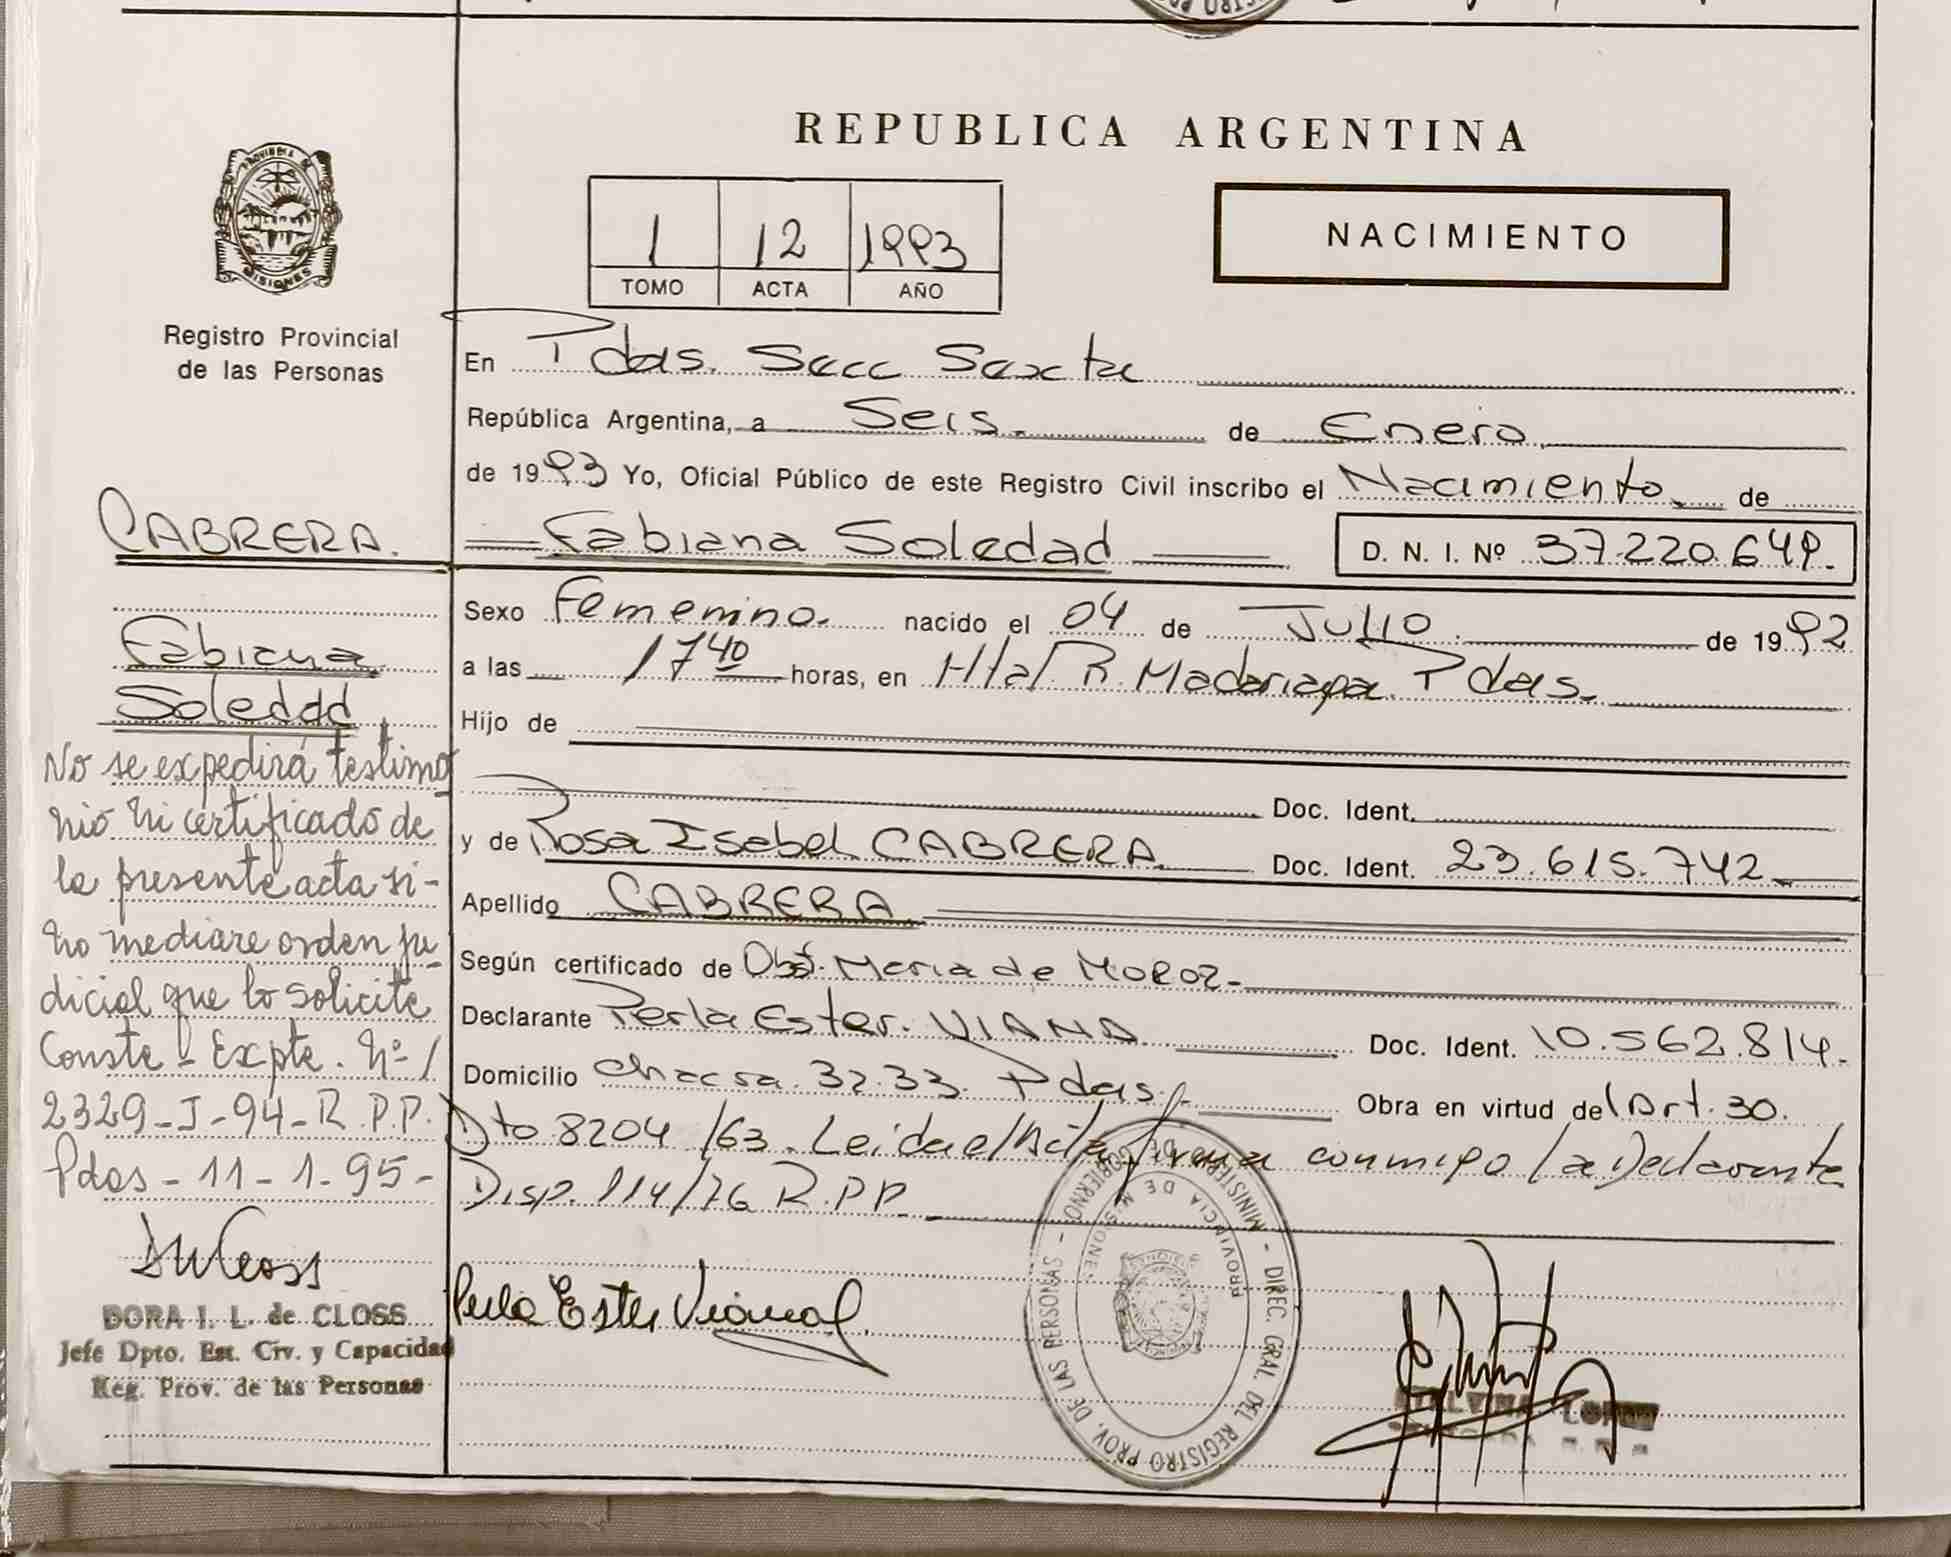 REPUBLICA ARGENTINA
PROVINCIA DE
MISIONES
Registro Provincial
de las Personas
1 12 1993
TOMO ACTA AÑO
NACIMIENTO
En Pdas. Secc Sexta
República Argentina, a Seis. de Enero
de 1993 Yo, Oficial Público de este Registro Civil inscribo el Nacimiento. de
CABRERA.
Fabiana Soledad D. N. I. Nº 37.220.649.
Fabiana
Soledad
Sexo Femenino. nacido el 04 de Julio. de 1992
a las 17 40 horas, en Htal. R. Madariaga. Pdas.
Hijo de
Doc. Ident.
y de Rosa Isabel CABRERA. Doc. Ident. 23.615.742
Apellido CABRERA.
Según certificado de Obst. Maria de MOROZ-
Declarante Perla Ester. VIANA Doc. Ident. 10.562.814.
Domicilio Chacra. 32.33. Pdas. Obra en virtud del Art. 30.
Dto 8204/63. Leida el Acta firma conmigo la Declarante
Disp. 114/76 R.P.P.
No se expedirá testimo
nio ni certificado de
la presente acta si-
no mediare orden ju-
dicial que lo solicite
Conste - Expte. Nº 1
2329-J-94-R.P.P.
Pdas - 11-1-95-
DORA I. L. de CLOSS
Jefe Dpto. Est. Civ. y Capacidad
Reg. Prov. de las Personas
Perla Ester Viana
MINISTERIO DE GOBIERNO - DIREC. GRAL. DEL REGISTRO PROV. DE LAS PERSONAS -
PROVINCIA DE MISIONES